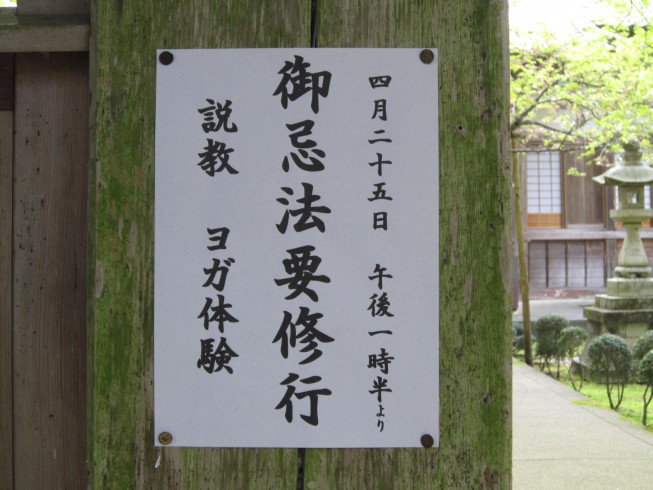 四月二十五日 午後一時半より
御忌法要修行
説教 ヨガ体験